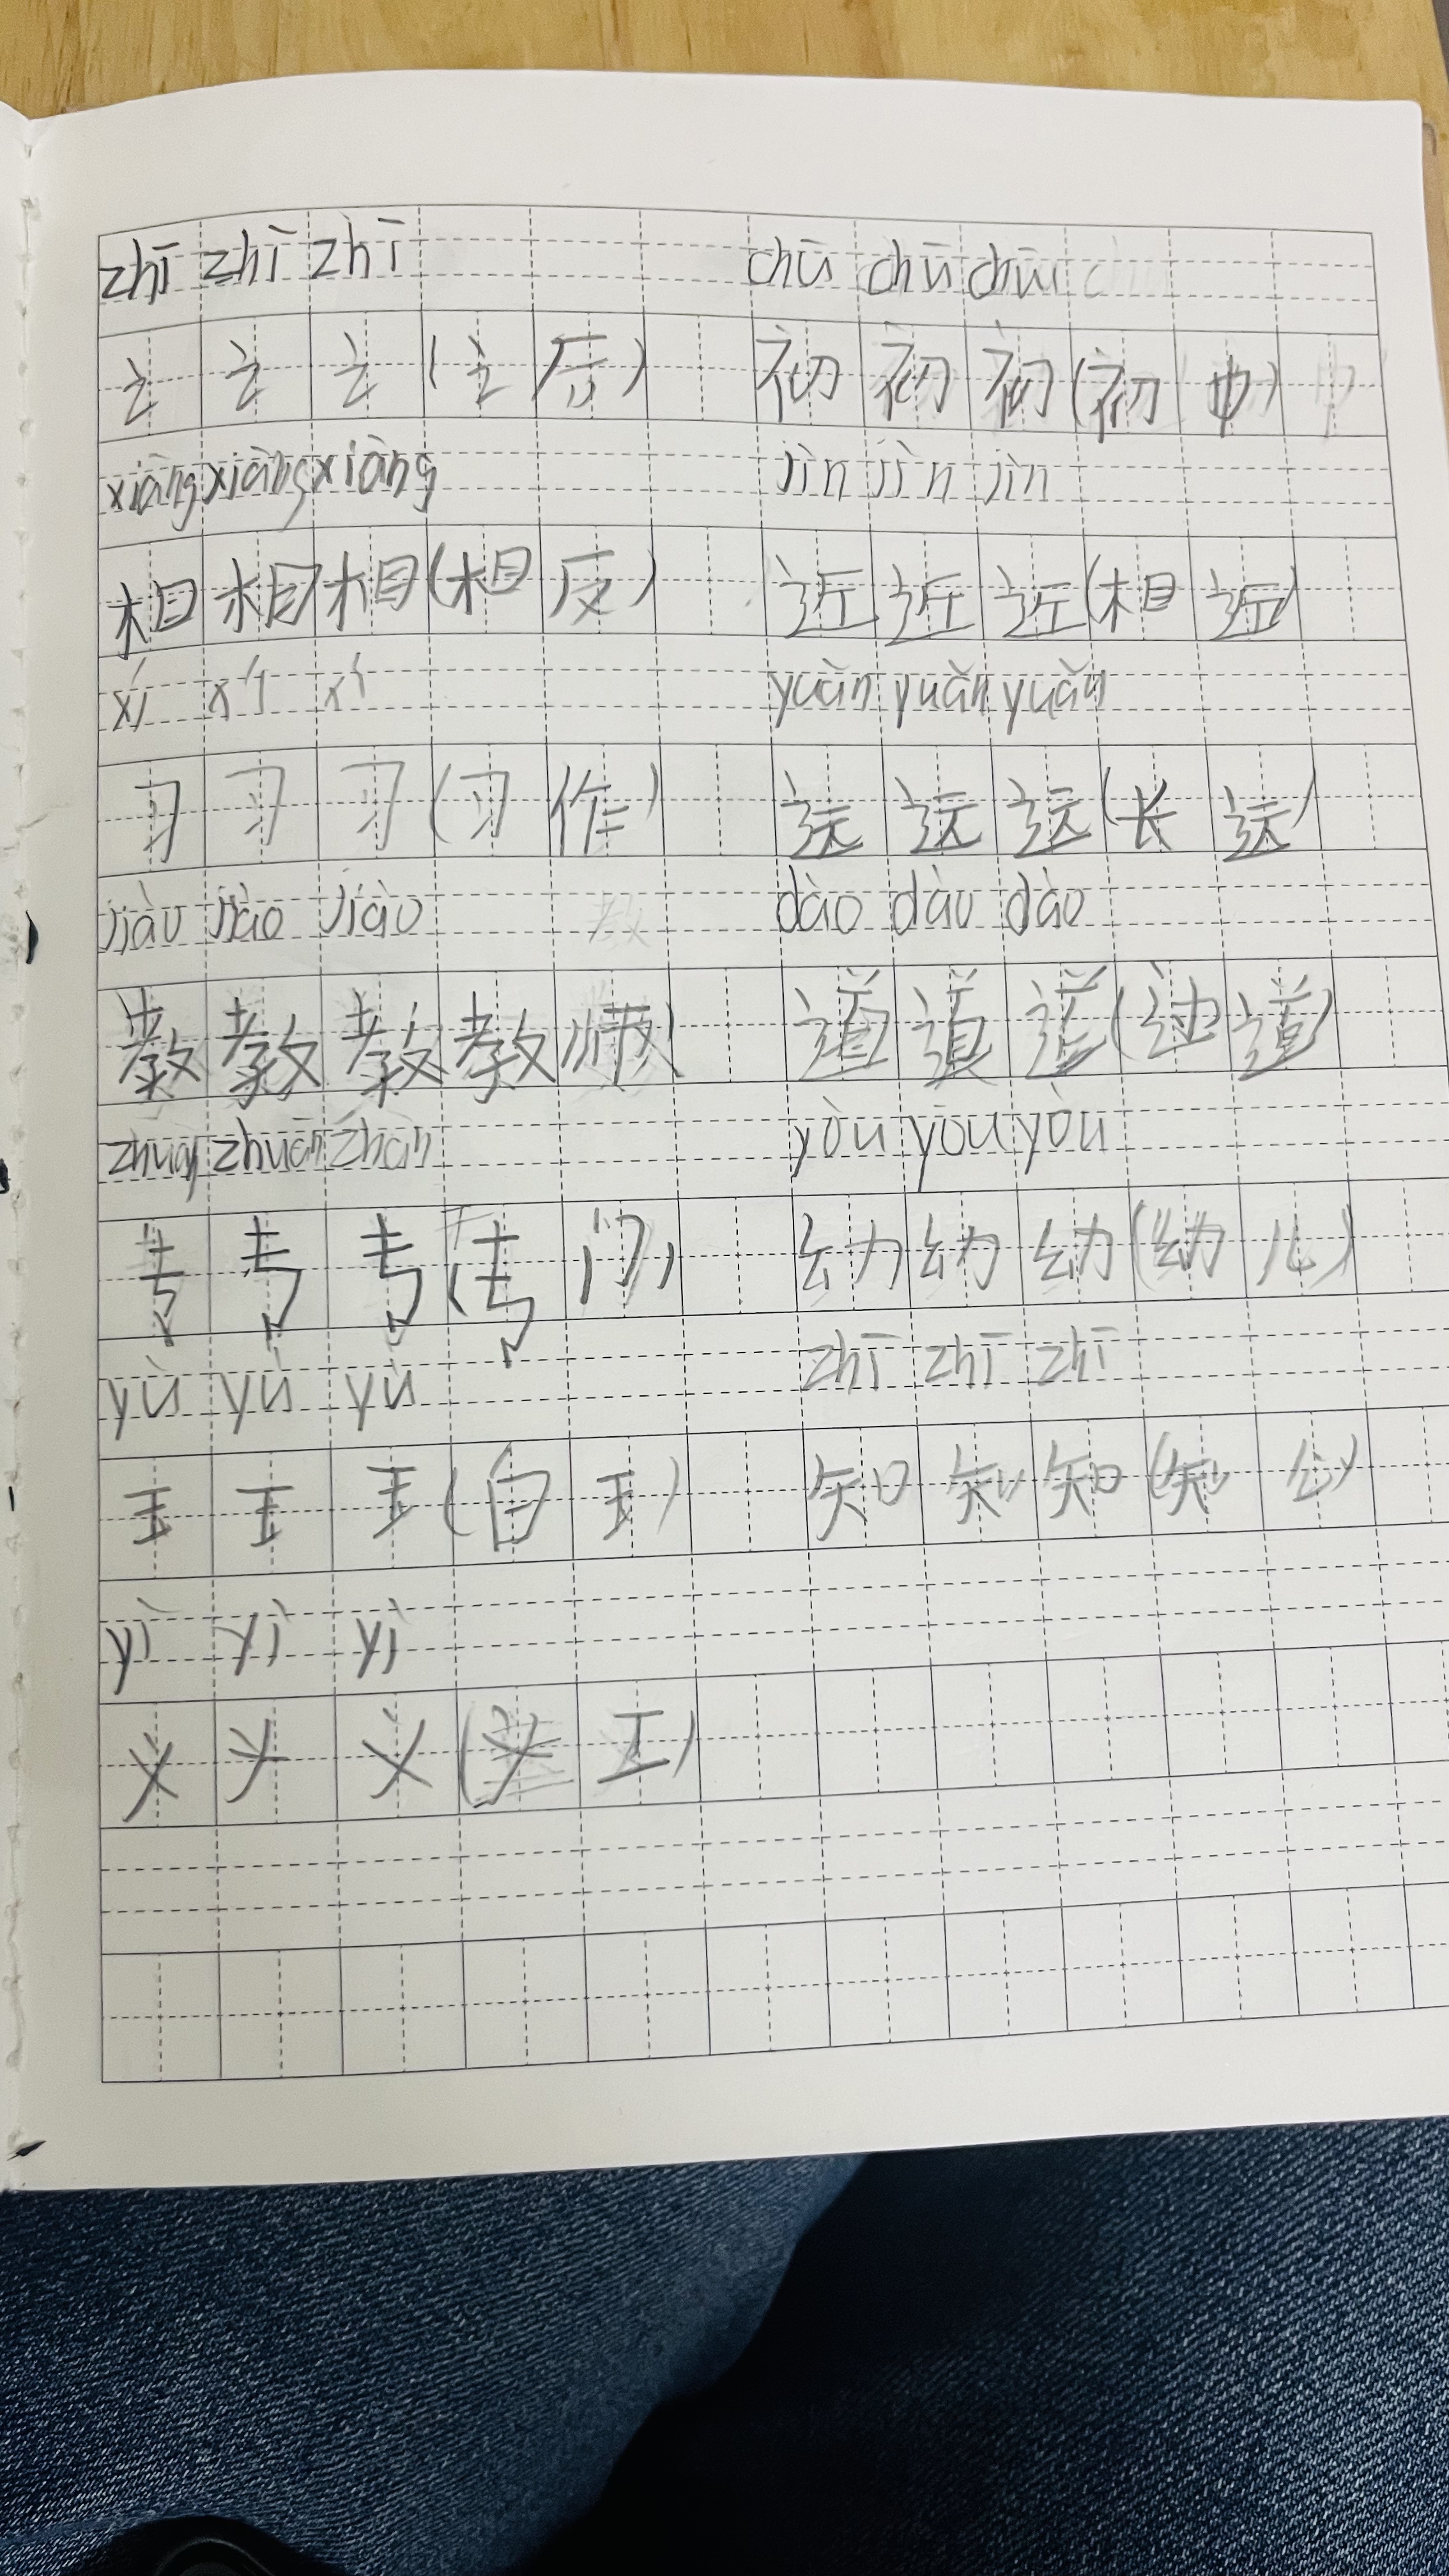 zhī zhī zhī chū chū chū
之 之 之 (之 后) 初 初 初 (初 中)
xiāng xiāng xiāng jìn jìn jìn
相 相 相 (相 反) 近 近 近 (相 近)
xí xí xí yuǎn yuǎn yuǎn
习 习 习 (习 作) 远 远 远 (长 远)
jiào jiào jiào dào dào dào
教 教 教 教 师) 道 道 道 (过 道)
zhuān zhuān zhān yòu yòu yòu
专 专 专 (专 门) 幼 幼 幼 (幼 儿)
yù yù yù zhī zhī zhī
玉 玉 玉 (白 玉) 知 知 知 (知 心)
yì yì yì
义 义 义 (义 工)